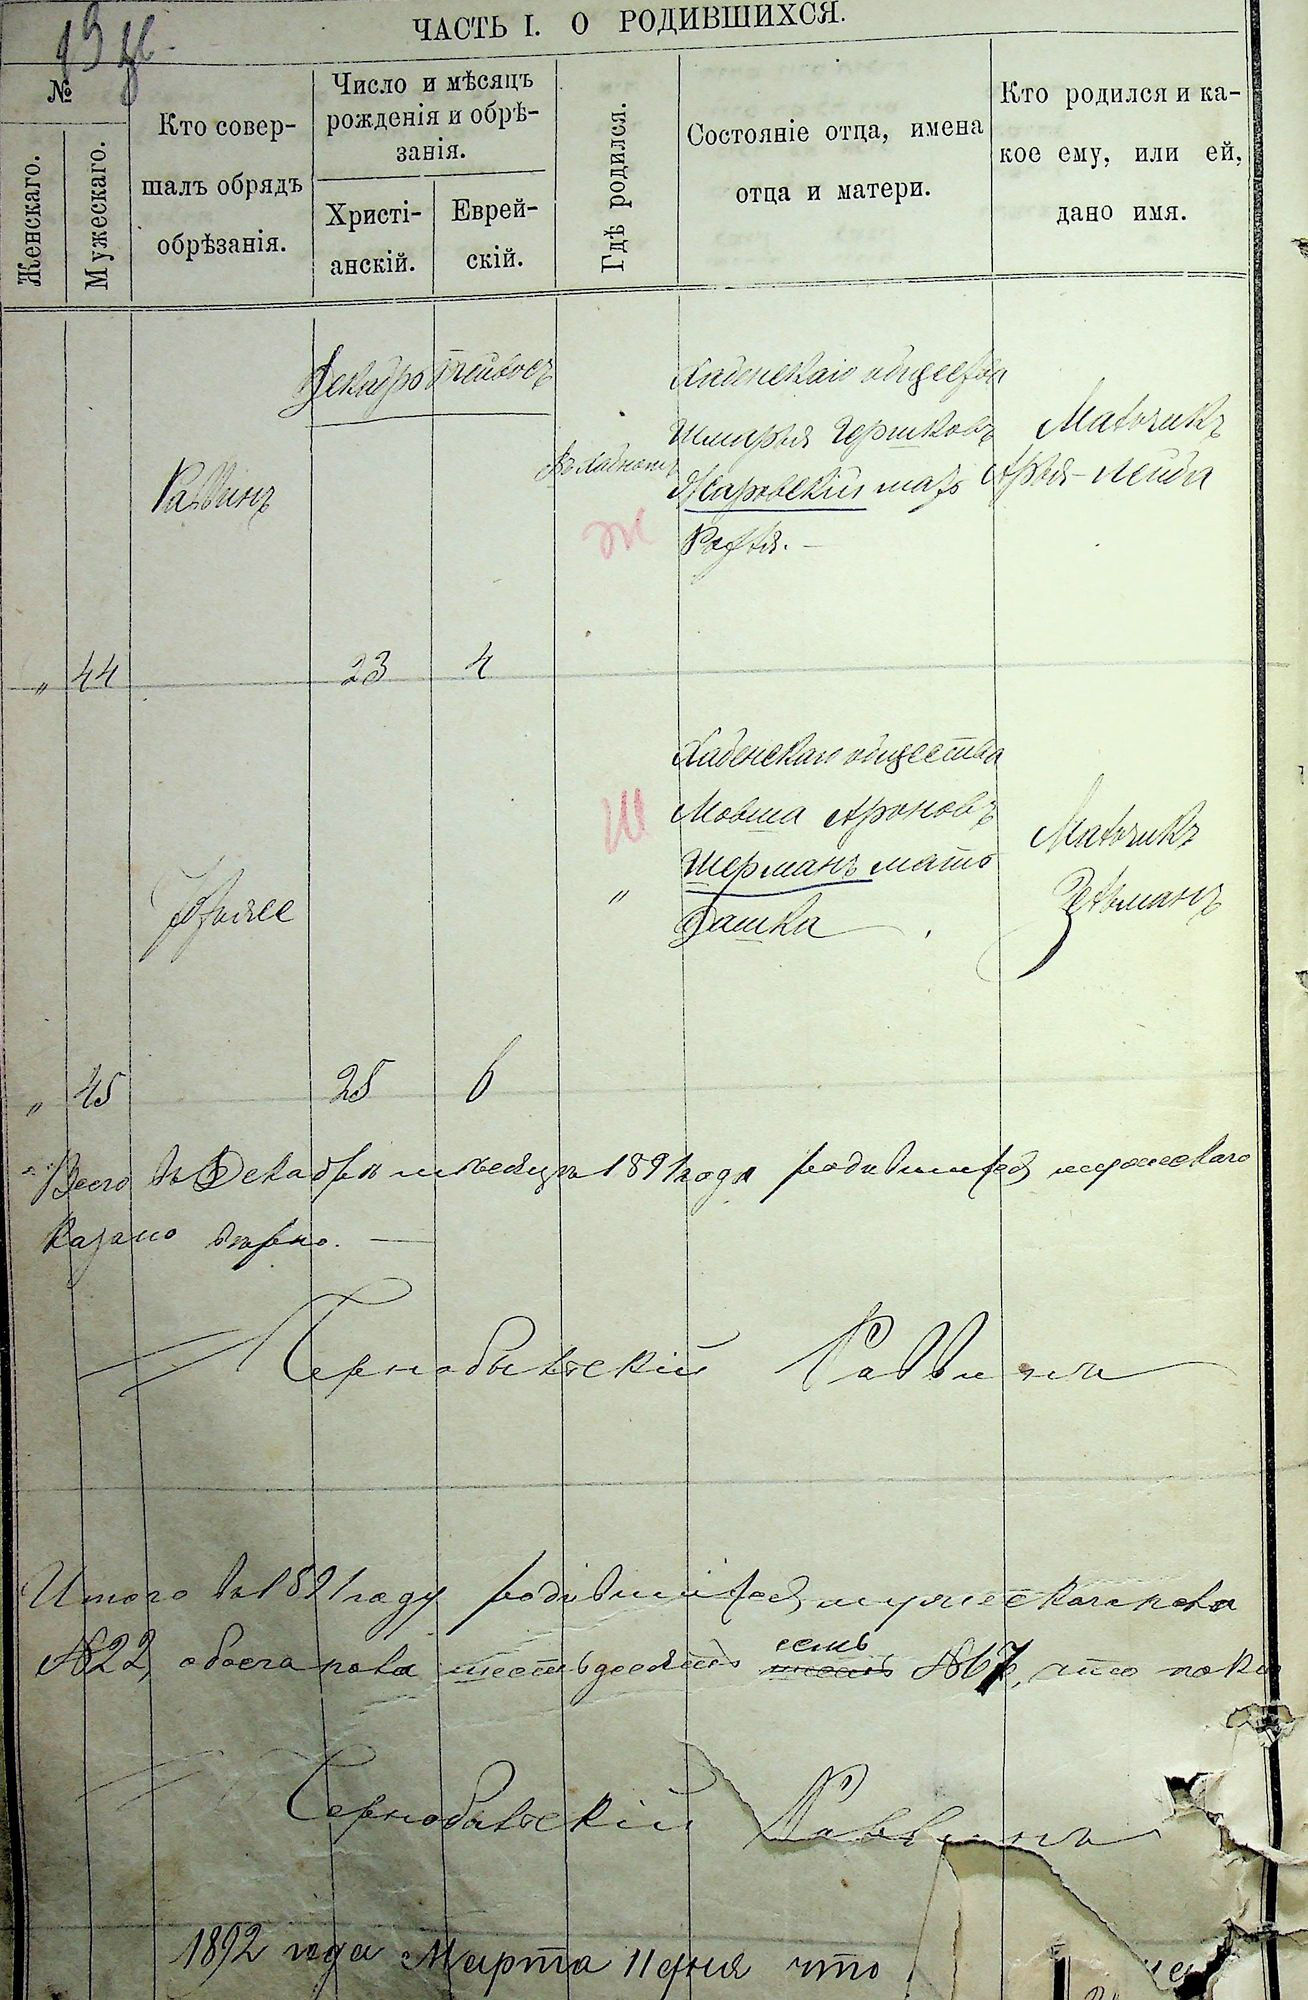 ЧАСТЬ I. О РОДИВШИХСЯ.
№
Женскаго.
Мужескаго.
Кто совер-
шалъ обрядъ
обрѣзанія.
Число и мѣсяцъ
рожденія и обрѣ-
занія.
Христі-
анскій.
Еврей-
скій.
Гдѣ родился.
Состояніе отца, имена
отца и матери.
Кто родился и ка-
кое ему, или ей,
дано имя.
Декабрь Тейвесъ
Хабенскаго общества
Шмарья Гершковъ
мать
Раввинъ
Мальчикъ
Арья-Лейба
Ж
" 44 23 4
Хабенскаго общества
Мовша Ароновъ
Шерманъ мать
Дашка
Ш
"
Тотже
Мальчикъ
Зельманъ
" 45 25 6
Всего въ Декабрѣ мѣсяцѣ 1891 года родившихся мужескаго
казано вѣрно. —
Чернобыльскій Раввинъ
Итого въ 1891 году родившихся мужескаго пола
№22, обоего пола шестьдесятъ семь №67, что пока
Чернобыльскій Раввинъ
1892 года Марта 11 дня что